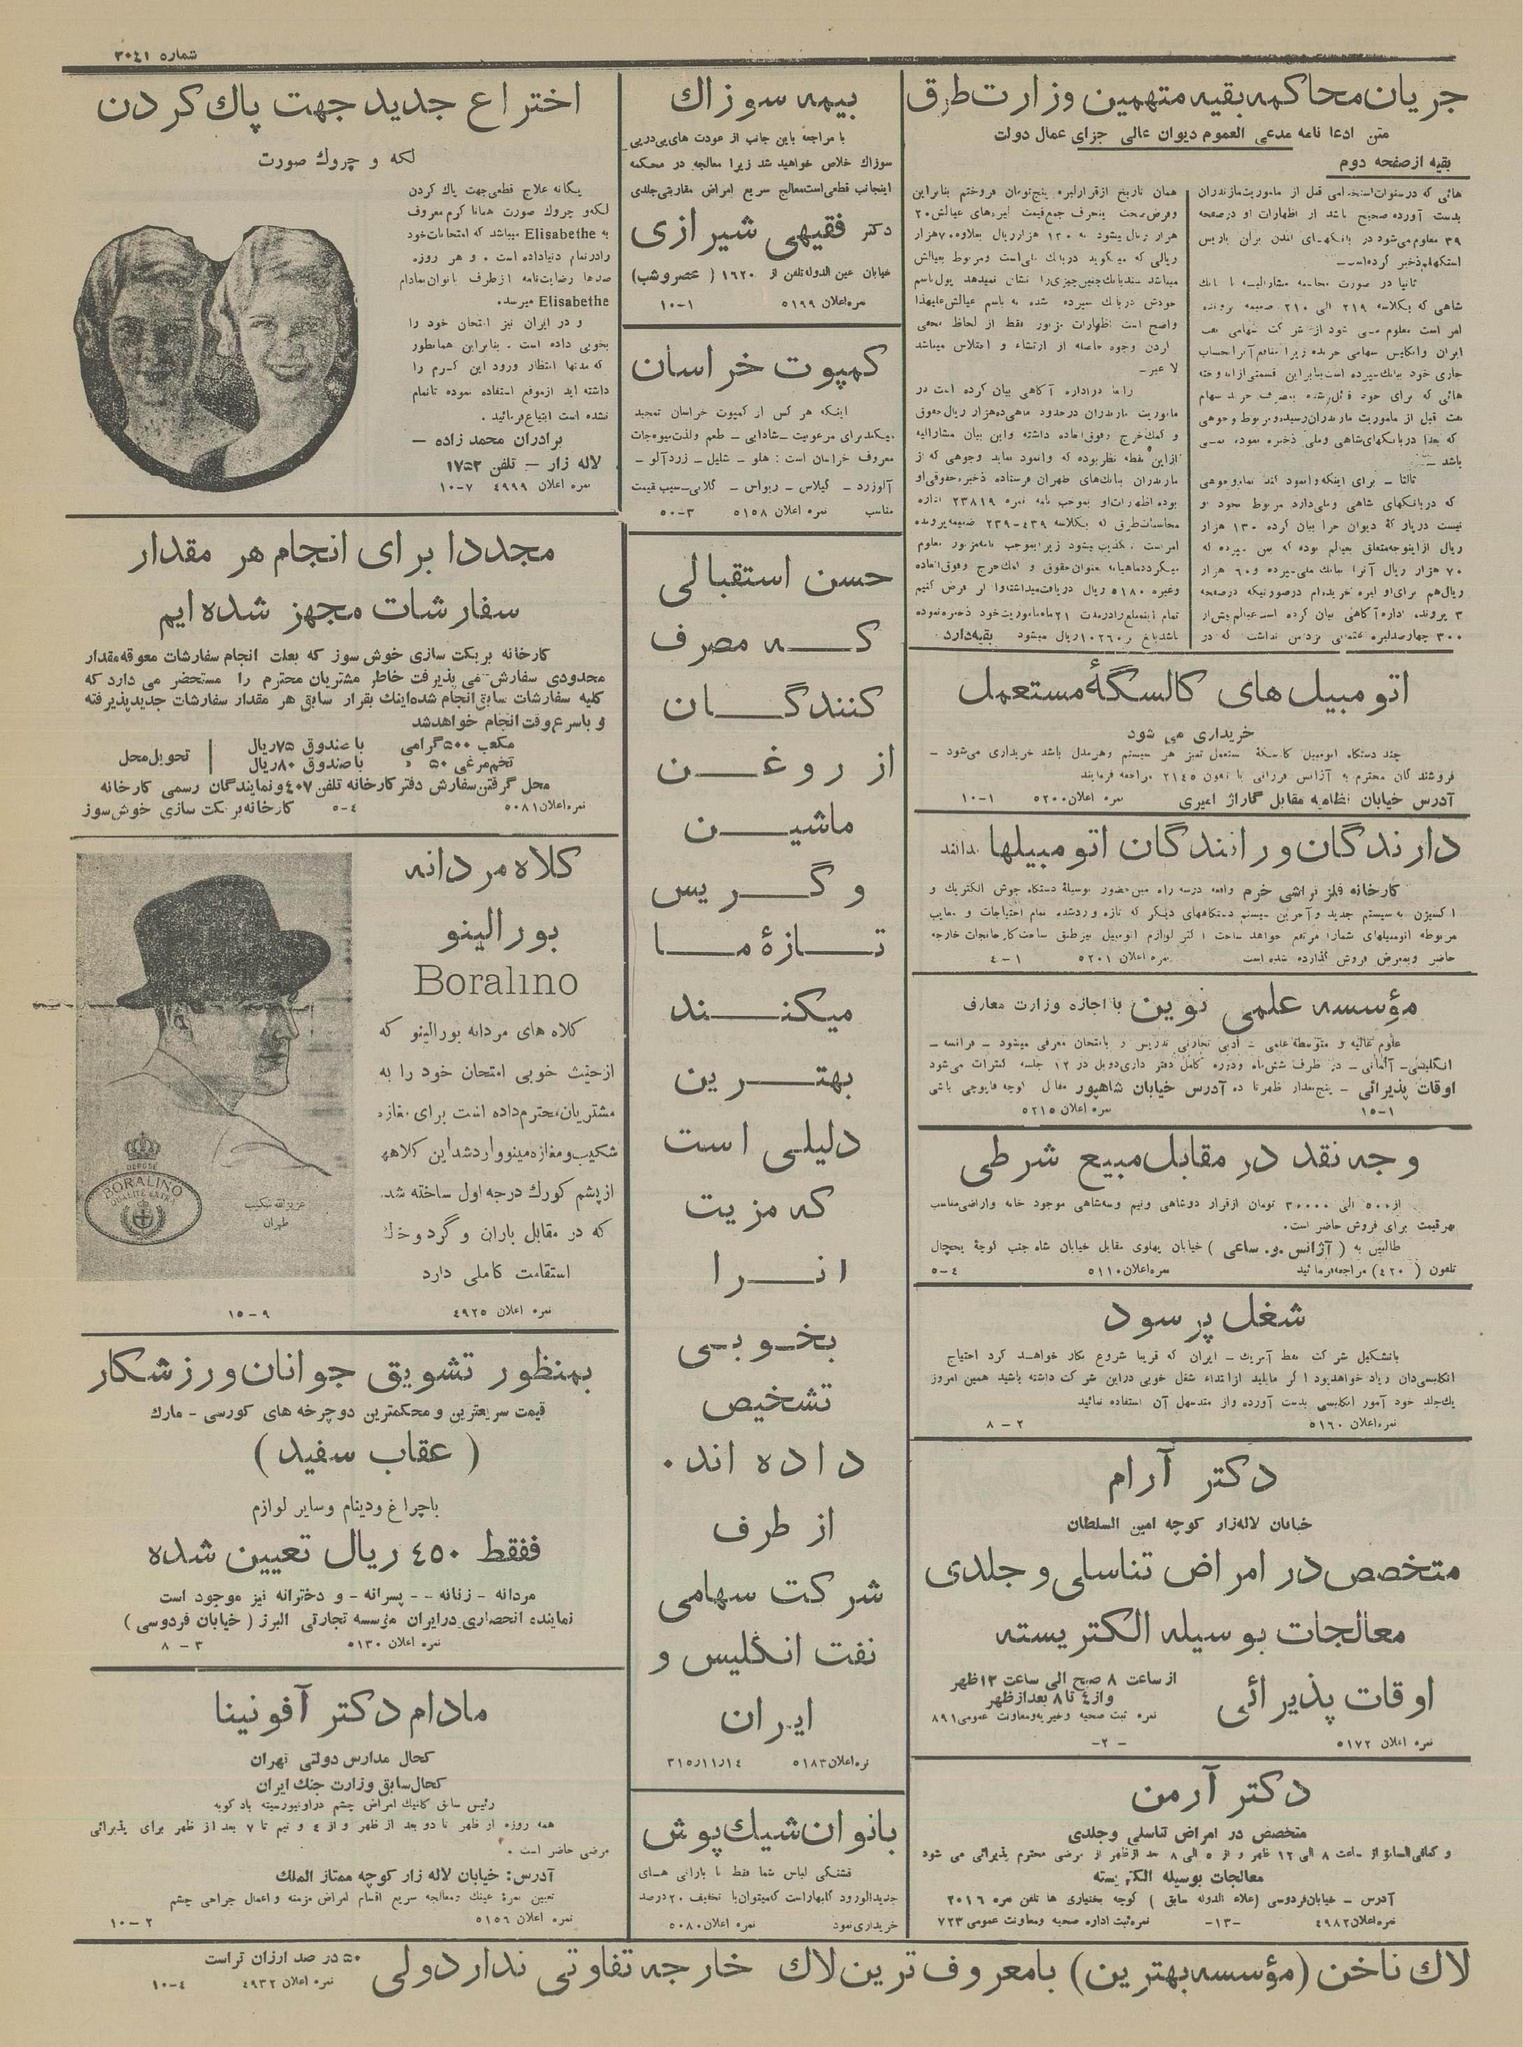 شماره ۳۰۴۱
جریان محاکمه بقیه متهمین وزارت طرق
متن ادعا نامه مدعی العموم دیوان عالی جزای عمال دولت
بقیه از صفحه دوم
بدست آورده صحیح باشد از اظهارات او در صفحه
۳۹ معلوم می‌شود در بانکهای لندن برلن پاریس
شاهی که بکلاسه ۲۱۹ الی ۲۱۰ ضمیمه پرونده
جاری خود بانک سپرده است بنابراین قسمتی از اندوخته
که بعدا در بانکهای شاهی و ملی ذخیره نموده نمی
باشد —
ثالثا — برای اینکه وانمود کند تمام وجوهی
که در بانکهای شاهی و ملی دارد مربوط بخود او
نیست در بار که دیوان جزا بیان کرده ۱۳۰ هزار
ریال از این وجه متعلق بعیالم بوده که بمن سپرده که
۷۰ هزار ریال آنرا ببانک ملی سپرده و ۶۰ هزار
ریال هم برای او لیره خریده‌ام در صورتیکه در صفحه
۳ پرونده اداره آگاهی بیان کرده است عیالم بیش از
همان تاریخ از قرار لیره پنج‌تومان فروختم بنابراین
هزار ریال میشود نه ۱۳۰ هزار ریال بعلاوه ۷۰ هزار
ریالی که میگوید در بانک ملی است و مربوط بعیالش
میباشد سند بانک چنین چیزی را نشان نمیدهد پول باسم
خودش در بانک سپرده شده نه باسم عیالش علیهذا
واضح است اظهارات مزبور فقط از لحاظ مخفی
کردن وجوه حاصله از ارتشاء و اختلاس میباشد
لا غیر —
رابعا در اداره آگاهی بیان کرده است در
ماموریت مازندران در حدود ماهی ده هزار ریال حقوق
و کمک خرج و فوق‌العاده داشته و این بیان مشارالیه
از این نقطه نظر بوده که وانمود نماید وجوهی که از
مازندران ببانک‌های طهران فرستاده ذخیره حقوقی او
بوده اظهارات او بموجب نامه نمره ۲۳۸۱۹ اداره
محاسبات طرق که بکلاسه ۴۳۹-۲۳۹ ضمیمه پرونده
امر است تکذیب میشود زیرا بموجب نامه مزبور معلوم
میگردد ماهیانه بعنوان حقوق و کمک خرج و فوق‌العاده
وغیره ۵۱۸۰ ریال دریافت میداشته و اگر فرض کنیم
تمام این مبلغ را در مدت ۲۱ ماه ماموریت خود ذخیره نموده
بقیه دارد
اتومبیل های کالسگهٔ مستعمل
خریداری می شود
چند دستگاه اتومبیل کالسگه مستعمل تمیز هر سیستم و هر مدل باشد خریداری می‌شود —
فروشندگان محترم به آژانس فرزانی با تلفون ۲۱۴۵ مراجعه فرمایند
آدرس خیابان نظامیه مقابل گاراژ امیری
نمره اعلان ۵۲۰۰ ۱-۱۰
دارندگان و رانندگان اتومبیلها بدانند
کارخانه فلز تراشی خرم واقعه در سه راه مین حضور بوسیلهٔ دستگاه جوش الکتریک و
اکسیژن به سیستم جدید و آخرین سیستم دستگاههای دیگر که تازه وارد شده تمام احتیاجات و معایب
مربوطه اتومبیلهای شما را مرتفع خواهد ساخت اکثر لوازم اتومبیل نیز طبق ساخت کارخانجات خارجه
حاضر و بمعرض فروش گذارده شده است نمره اعلان ۵۲۰۱ ۱-۴
مؤسسه علمی نوین با اجازه وزارت معارف
انگلیسی — آلمانی — در ظرف شش‌ماه و دوره کامل دفتر داری دوبل در ۱۲ جلسه کنترات می‌شود
۱-۱۵ نمره اعلان ۵۲۱۵
وجه نقد در مقابل مبیع شرطی
از ۵۰۰ الی ۳۰۰۰۰ تومان از قرار دو شاهی و نیم و سه شاهی موجود خانه و اراضی مناسب
بهر قیمت برای فروش حاضر است.
طالبین به (آژانس .و. ساعی) خیابان پهلوی مقابل خیابان شاه جنب کوچهٔ یخچال
تلفون (۴۲۰) مراجعه فرمائید نمره اعلان ۵۱۱۰ ۴-۵
شغل پر سود
باتشکیل شرکت نفط آمریک — ایران که قریبا شروع بکار خواهد کرد احتیاج
انگلیسی‌دان زیاد خواهد بود اگر مایلید از ابتداء شغل خوبی در این شرکت داشته باشید همین امروز
یک جلد خود آموز انگلیسی بدست آورده و از متد سهل آن استفاده نمائید
نمره اعلان ۵۱۶۰ ۲-۸
دکتر آرام
خیابان لاله‌زار کوچه امین السلطان
متخصص در امراض تناسلی و جلدی
معالجات بوسیله الکتریسته
اوقات پذیرائی
از ساعت ۸ صبح الی ساعت ۱۲ ظهر
و از ۴ تا ۸ بعد از ظهر
نمره ثبت صحیه و خیریه و معاونت عمومی ۸۹۱
نمره اعلان ۵۱۷۲ -۲-
دکتر آرمن
متخصص در امراض تناسلی و جلدی
و کمافی‌السابق از ساعت ۸ الی ۱۲ ظهر و از ۵ الی ۸ بعد از ظهر از مرضی محترم پذیرائی می شود
معالجات بوسیله الکتریسته
آدرس — خیابان فردوسی (علاء الدوله سابق) کوچه بختیاری ها تلفن نمره ۲۰۱۶
نمره اعلان ۴۹۸۲ -۱۳- نمره ثبت اداره صحیه و معاونت عمومی ۷۲۳
بیمه سوزاك
با مراجعه باین جانب از عودت های پی‌درپی
سوزاك خلاص خواهید شد زیرا معالجه در محکمه
اینجانب قطعی است معالج سریع امراض مقاربتی جلدی
دکتر فقیهی شیرازی
خیابان عین الدوله تلفن از ۱۶۲۰ (عصر و شب)
نمره اعلان ۵۱۹۹ ۱-۱۰
کمپوت خراسان
اینکه هر کس از کمپوت خراسان تمجید
میکند برای مرغوبیت — شادابی — طعم و لذت میوه‌جات
معروف خراسان است : هلو — شلیل — زردآلو —
آلوزرد — گیلاس — ریواس — گلابی — سیب قیمت
مناسب نمره اعلان ۵۱۵۸ ۳-۵۰
حسن استقبالی
که مصرف
کنندگان
از روغن
ماشین
و گریس
تازهٔ ما
میکنند
بهترین
دلیلی است
که مزیت
انرا
بخوبی
تشخیص
داده اند.
از طرف
شرکت سهامی
نفت انگلیس و
ایران
نمره اعلان ۵۱۸۳ ۳۱۵/۱۱/۱۴
بانوان شیك پوش
قشنگی لباس شما فقط با بارانی های
جدیدالورود گابهار است که میتوان با تخفیف ۲۰ درصد
خریداری نمود نمره اعلان ۵۰۸۰
اختراع جدید جهت پاك کردن
لکه و چروك صورت
یگانه علاج قطعی جهت پاك کردن
لکه و چروك صورت همانا کرم معروف
به Elisabethe میباشد که امتحانات خود
را در تمام دنیا داده است . و هر روزه
صدها رضایت‌نامه از طرف بانوان بمادام
Elisabethe میرسد.
و در ایران نیز امتحان خود را
بخوبی داده است . بنابراین همانطور
که مدتها انتظار ورود این کرم را
داشته اید از موقع استفاده نموده تا تمام
نشده است ابتیاع فرمائید .
برادران محمد زاده —
لاله زار — تلفن ۱۷۵۳
نمره اعلان ۴۹۹۹ ۷-۱۰
مجددا برای انجام هر مقدار
سفارشات مجهز شده ایم
کارخانه بریکت سازی خوش سوز که بعلت انجام سفارشات معوقه مقدار
محدودی سفارش می پذیرفت خاطر مشتریان محترم را مستحضر می دارد که
کلیه سفارشات سابق انجام شده اینك بقرار سابق هر مقدار سفارشات جدید پذیرفته
و باسرع وقت انجام خواهد شد
مکعب ۵۰۰ گرامی با صندوق ۷۵ ریال
تخم‌مرغی ۵۰ » با صندوق ۸۰ ریال
تحویل محل
محل گرفتن سفارش دفتر کارخانه تلفن ۴۰۷ و نمایندگان رسمی کارخانه
نمره اعلان ۵۰۸۱ ۴-۵ کارخانه بریکت سازی خوش سوز
کلاه مردانه
بورالینو
Boralino
کلاه های مردانه بورالینو که
از حیث خوبی امتحان خود را به
مشتریان محترم داده است برای مغازه
شکیب و مغازه مینو وارد شد این کلاهها
از پشم کورك درجه اول ساخته شده
که در مقابل باران و گرد و خاك
استقامت کاملی دارد
نمره اعلان ۴۹۲۵ ۹-۱۵
DEPOSE
BORALINO
QUALITÉ EXTRA
عزیزالله شکیب
طهران
بمنظور تشویق جوانان ورزشکار
قیمت سریعترین و محکمترین دوچرخه های کورسی - مارك
(عقاب سفید)
باچراغ ودینام وسایر لوازم
ففقط ۴۵۰ ریال تعیین شده
مردانه - زنانه -- پسرانه - و دخترانه نیز موجود است
نماینده انحصاری در ایران مؤسسه تجارتی البرز (خیابان فردوسی)
نمره اعلان ۵۱۳۰ ۳-۸
مادام دکتر آفونینا
کحال مدارس دولتی تهران
کحال سابق وزارت جنك ایران
رئیس سابق کلنیك امراض چشم در اونیورسیته بادکوبه
همه روزه از ظهر تا دو بعد از ظهر و از ۴ و نیم تا ۷ بعد از ظهر برای پذیرائی
مرضی حاضر است .
آدرس: خیابان لاله زار کوچه ممتاز الملك
تعیین نمره عینك و معالجه سریع اقسام امراض مزمنه و اعمال جراحی چشم
نمره اعلان ۵۱۵۶ ۲-۱۰
لاك ناخن (مؤسسه بهترین) بامعروف ترین لاك خارجه تفاوتی ندارد ولی
۵۰ در صد ارزان تر است
نمره اعلان ۴۹۳۲ ۴-۱۰